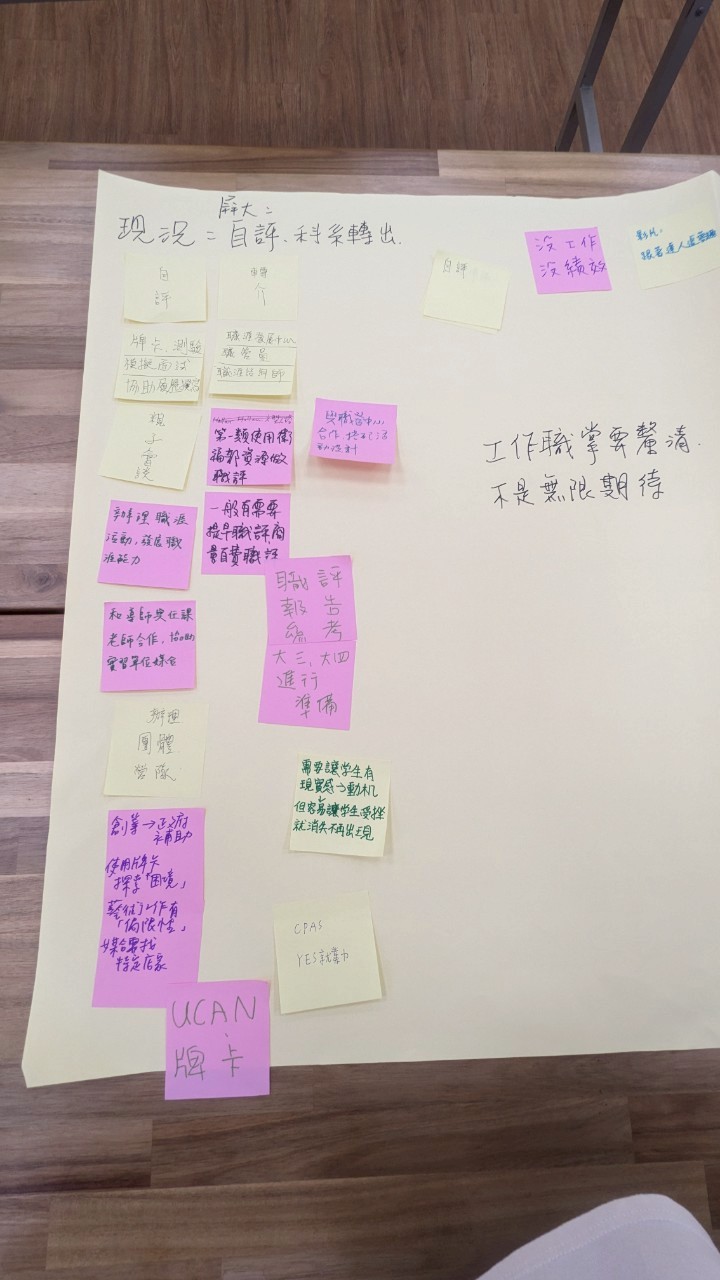 屏大：
現況：自評、科系轉出.
自
評
轉
介
自評
沒工作
沒績效
牌卡、測驗
模擬面試
協助履歷撰寫
職涯發展中心
職管員
職涯諮商師
第一類使用衛
福部資源做
職評
與職發中心
合作,
工作職掌要釐清.
不是無限期待
辦理職涯
活動,發展職
涯能力
一般有需要
提早職評商
量自費職評
職評
報告
參考
大三、大四
進行
準備
和導師與任課
老師合作，協助
實習單位媒合
辦理
團體
營隊
需要讓学生有
現實感→動机
但容易讓学生受挫
就消失不再出現
創業→政府
補助
使用牌卡
探索「困境」
藝術工作有
「侷限性」
媒合要找
特定店家
CPAS
YES就動
UCAN、
牌卡